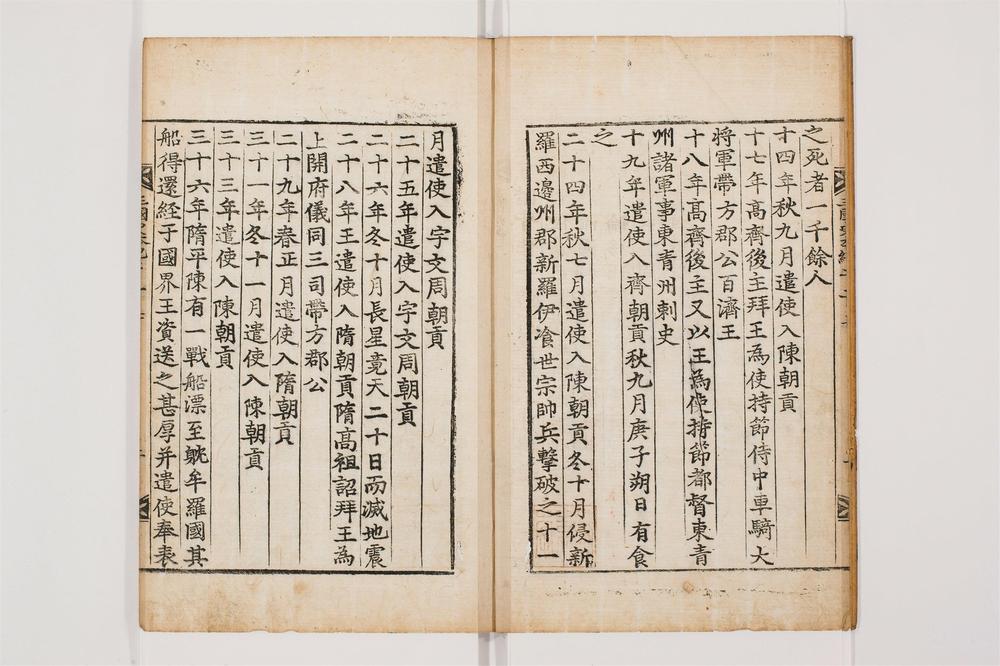 之死者一千餘人
十四年秋九月遣使入陳朝貢
十七年高齊後主拜王為使持節侍中車騎大
將軍帶方郡公百濟王
十八年高齊後主又以王為使持節都督東青
州諸軍事東青州刺史
十九年遣使入齊朝貢秋九月庚子朔日有食
之
二十四年秋七月遣使入陳朝貢冬十月侵新
羅西邊州郡新羅伊飡世宗帥兵擊破之十一
月遣使入宇文周朝貢
二十五年遣使入宇文周朝貢
二十六年冬十月長星竟天二十日而滅地震
二十八年王遣使入隋朝貢隋高祖詔拜王為
上開府儀同三司帶方郡公
二十九年春正月遣使入隋朝貢
三十一年冬十一月遣使入陳朝貢
三十三年遣使入陳朝貢
三十六年隋平陳有一戰船漂至躭牟羅國其
船得還経于國界王資送之甚厚并遣使奉表